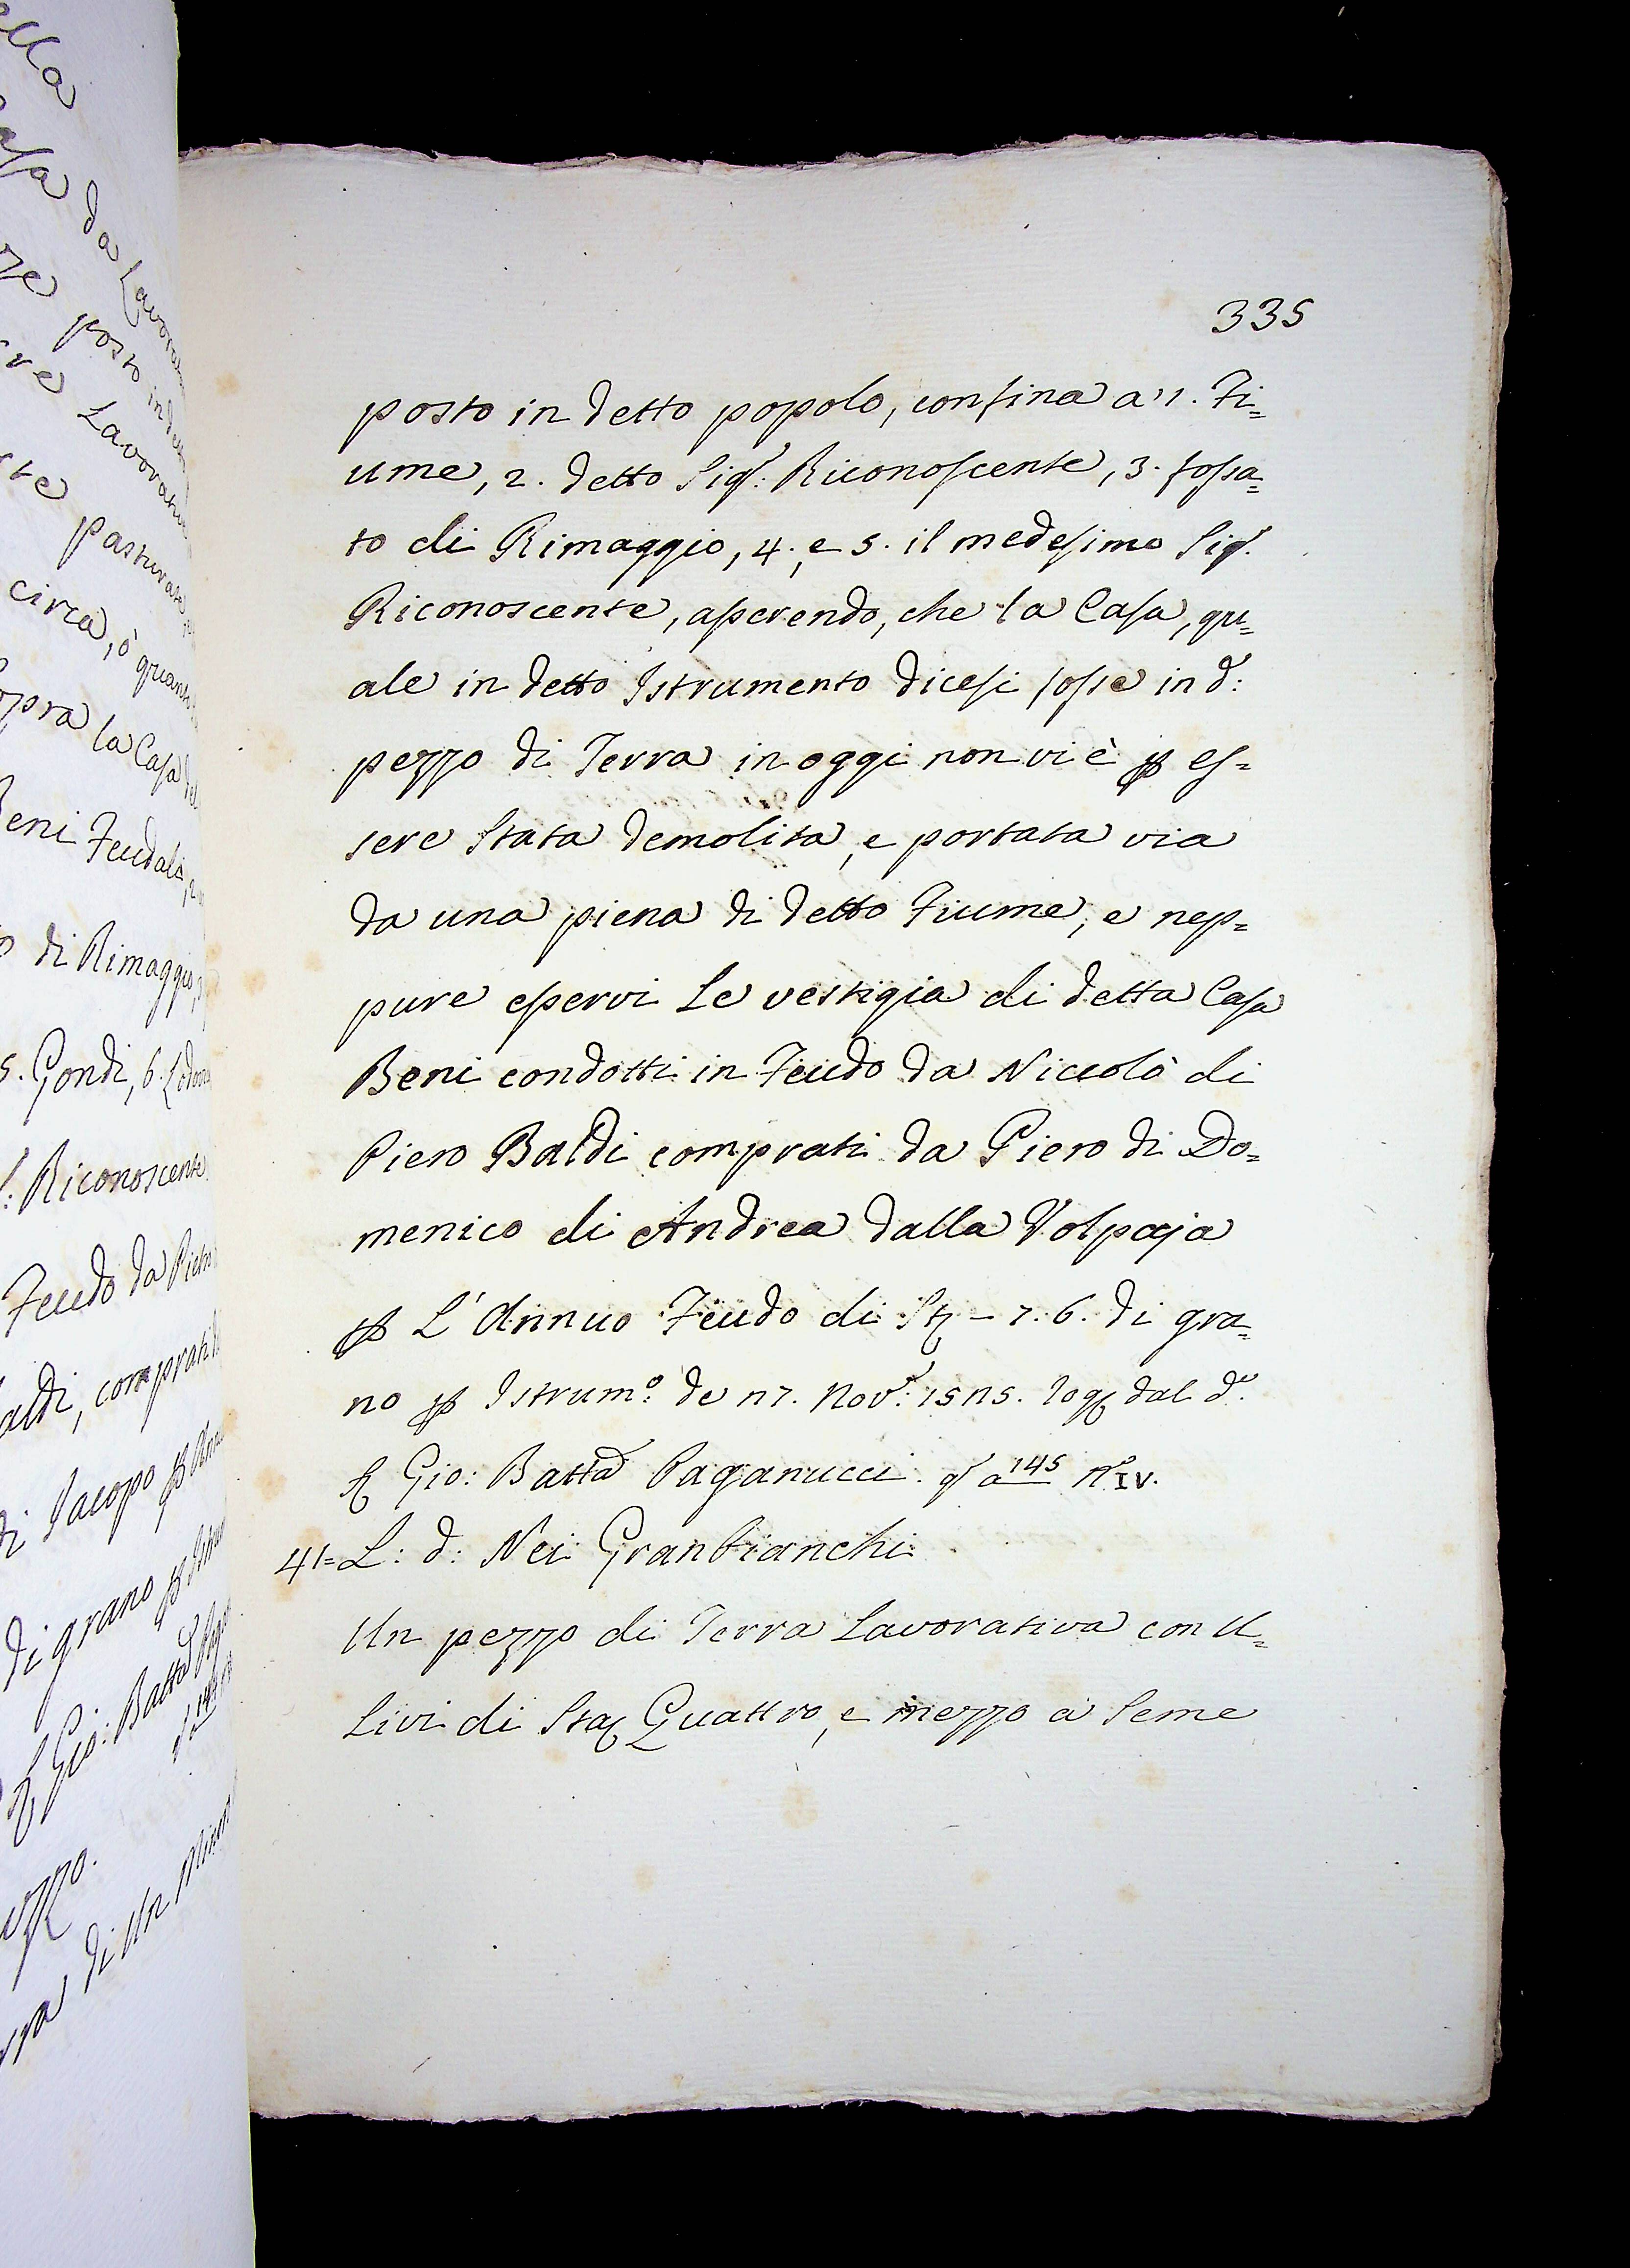 335
posto in detto popolo, confina a' 1. Fi=
ume, 2. detto Sig.: Riconoscente, 3. fossa=
to di Rimaggio, 4. e 5. il medesimo Sig.
Riconoscente, asserendo, che la Casa, qu=
ale in detto Istrumento dicesi fosse in d:
pezzo di Terra in oggi non vi è p es=
sere stata demolita, e portata via
da una piena di detto Fiume, e nep=
pure esservi Le vestigia di detta Casa
Beni condotti in Feudo da Niccolò di
Piero Baldi comprati da Piero di Do=
menico di Andrea dalla Volpaja
p L'Annuo Feudo di St - 7. 6. di gra=
no p Istrum.o de 27. Nov.: 1525. rog dal d.o
S Gio: Batta Paganucci. q a 145 N.o IV.
41= L: d: Nei Granbianchi
Un pezzo di Terra Lavorativa con U=
Livi di Sta Quattro, e mezzo a Seme
ella
Casa da Lavora
posto in de
Lavorati
Pasturate
circa, ò quanto
sopra la Casa del
Beni Feudali, 2
di Rimaggio, 3
5. Gondi, 6. Lodov
: Riconoscente
Feudo da Pietro
Baldi, comprati
di Iacopo p Ann
di grano p Istru
S Gio: Batta Paga
di Un